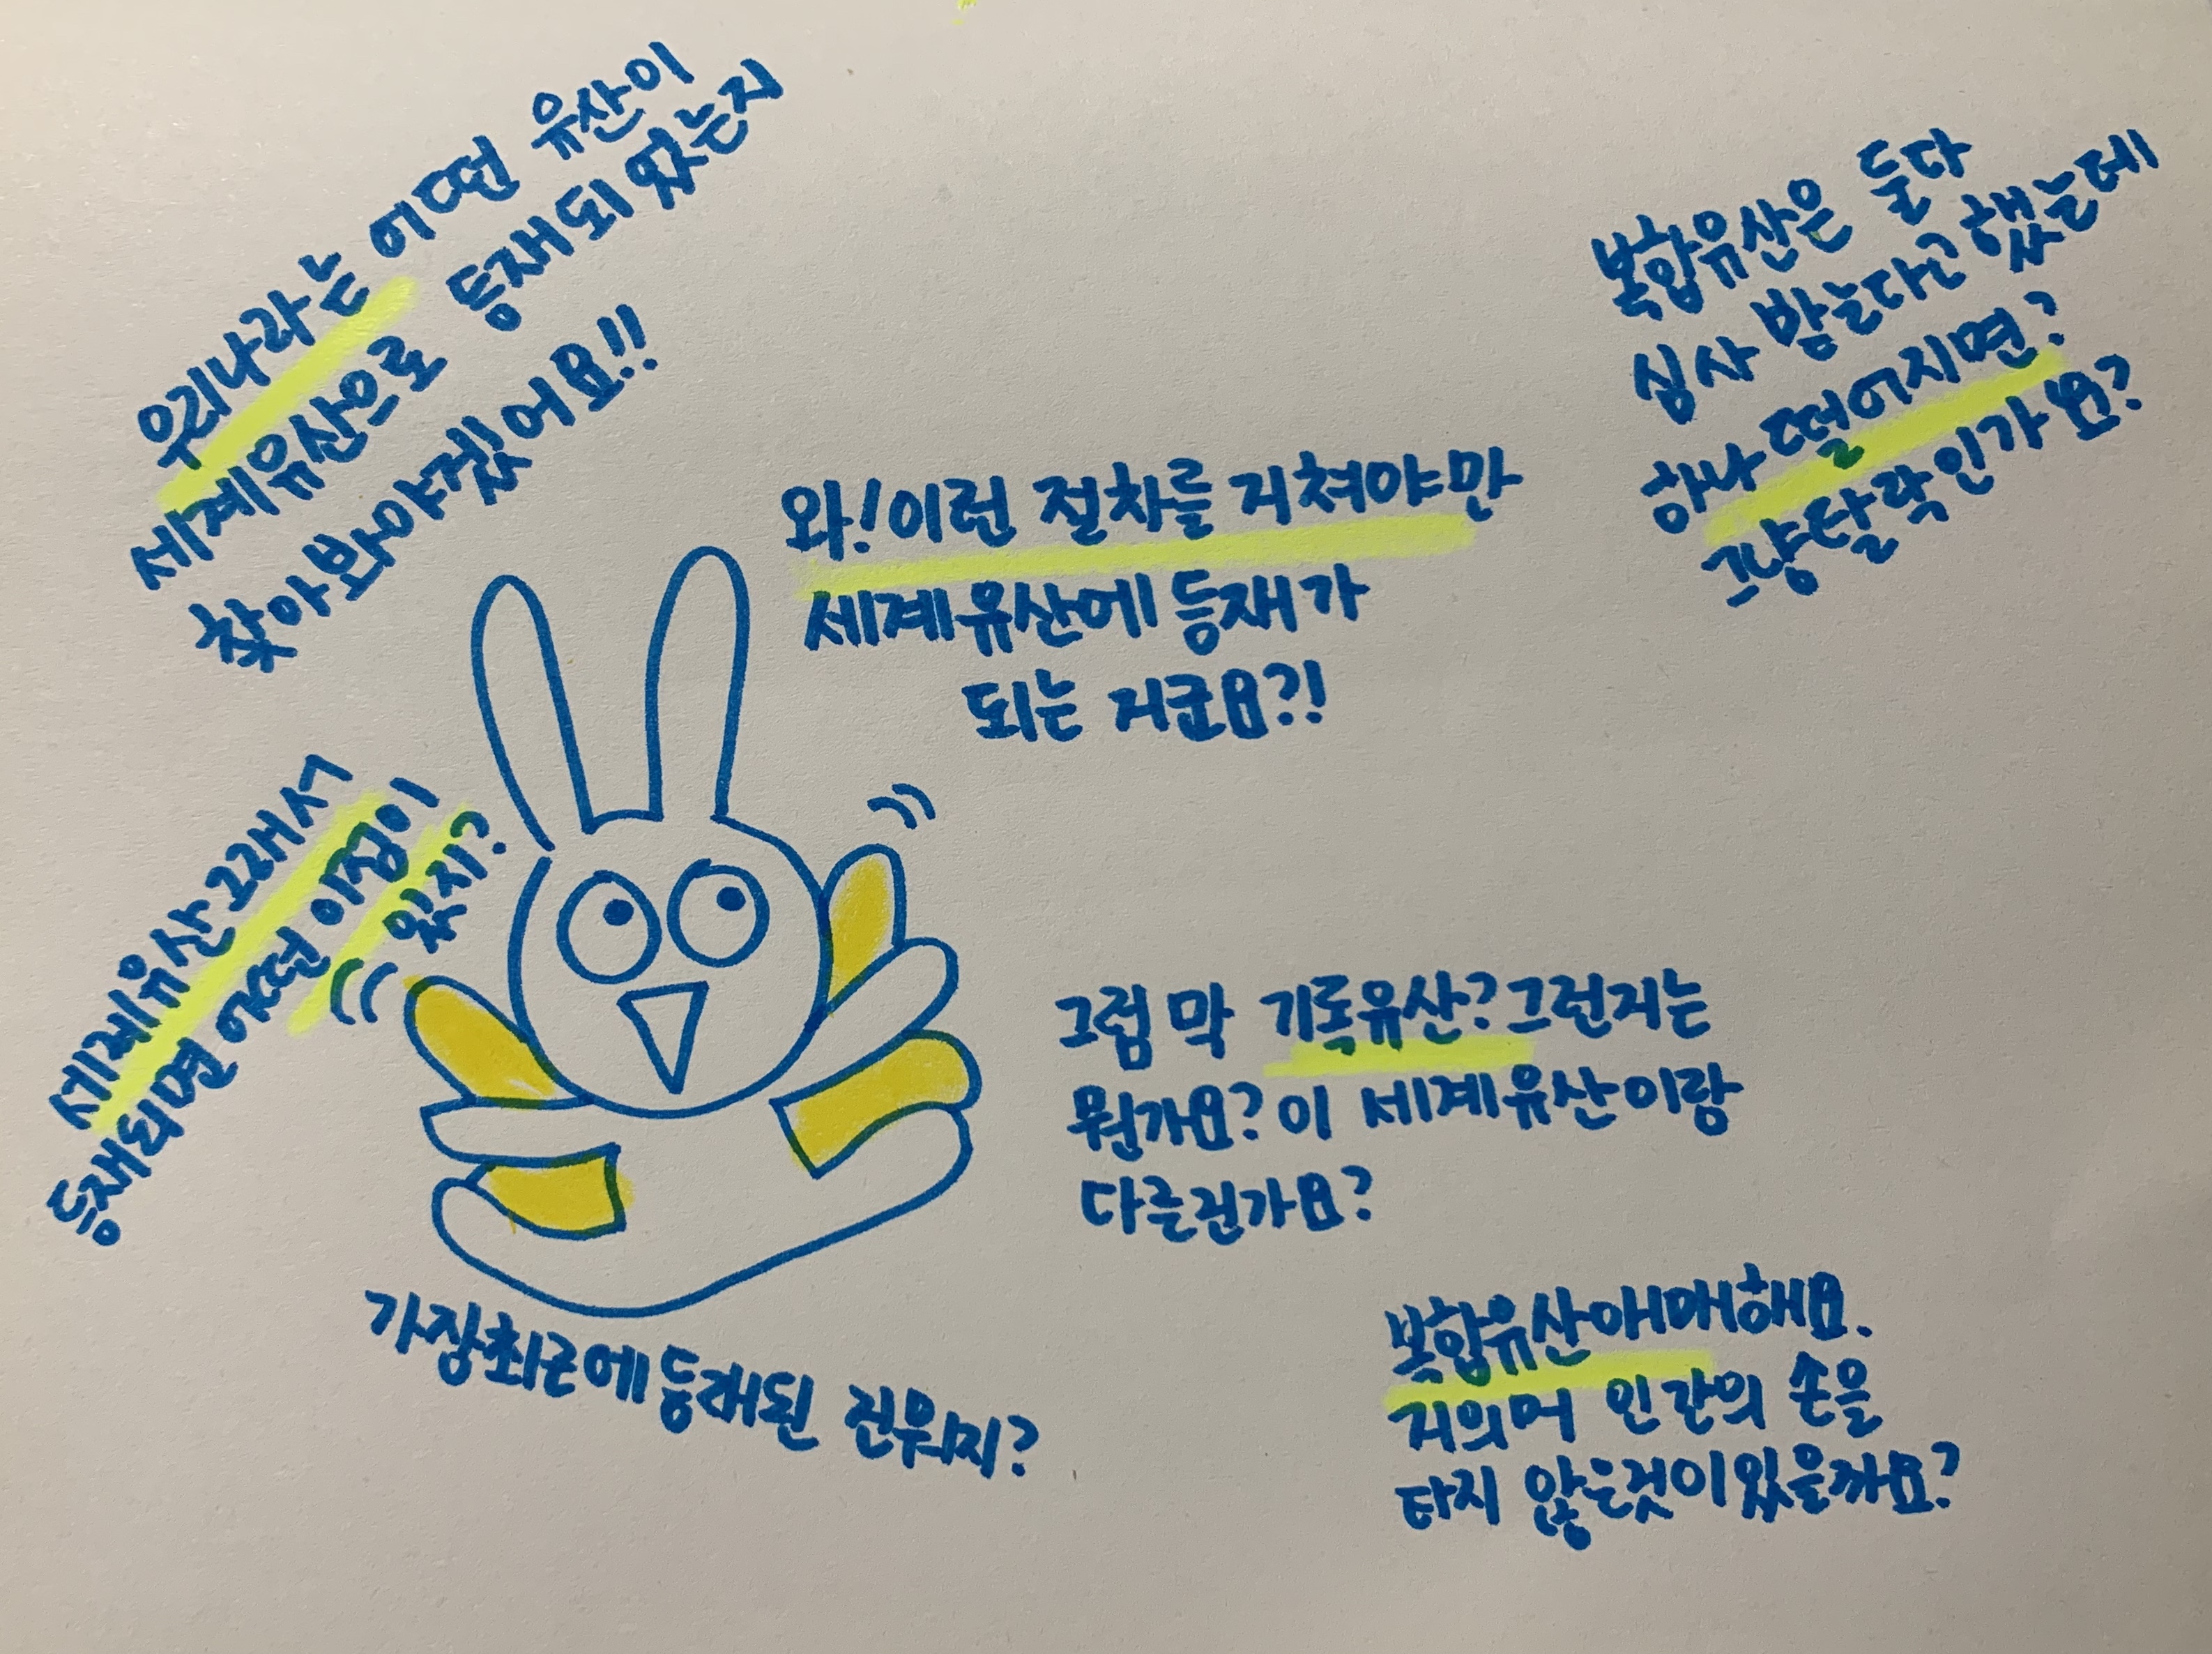 우리나라는 어떤 유산이
세계유산으로 등재되 있는지
찾아봐야겠어요!!
복합유산은 둘다
심사 받는다고 했는데
하나 떨어지면?
그냥 탈락인가요?
와! 이런 절차를 거쳐야만
세계유산에 등재가
되는 거군요?!
세계유산 그래서
등재되면 어떤 이점이
있지?
그럼 막 기록유산? 그런거는
뭔가요? 이 세계유산이랑
다른건가요?
가장최근에 등재된 건 뭐지?
복합유산 애매해요.
거의머 인간의 손을
타지 않은것이 있을까요?